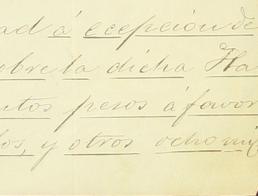 ad á ecepcion de
obre la dicha Ha
ntos pesos á favor
los, y otros ocho mi